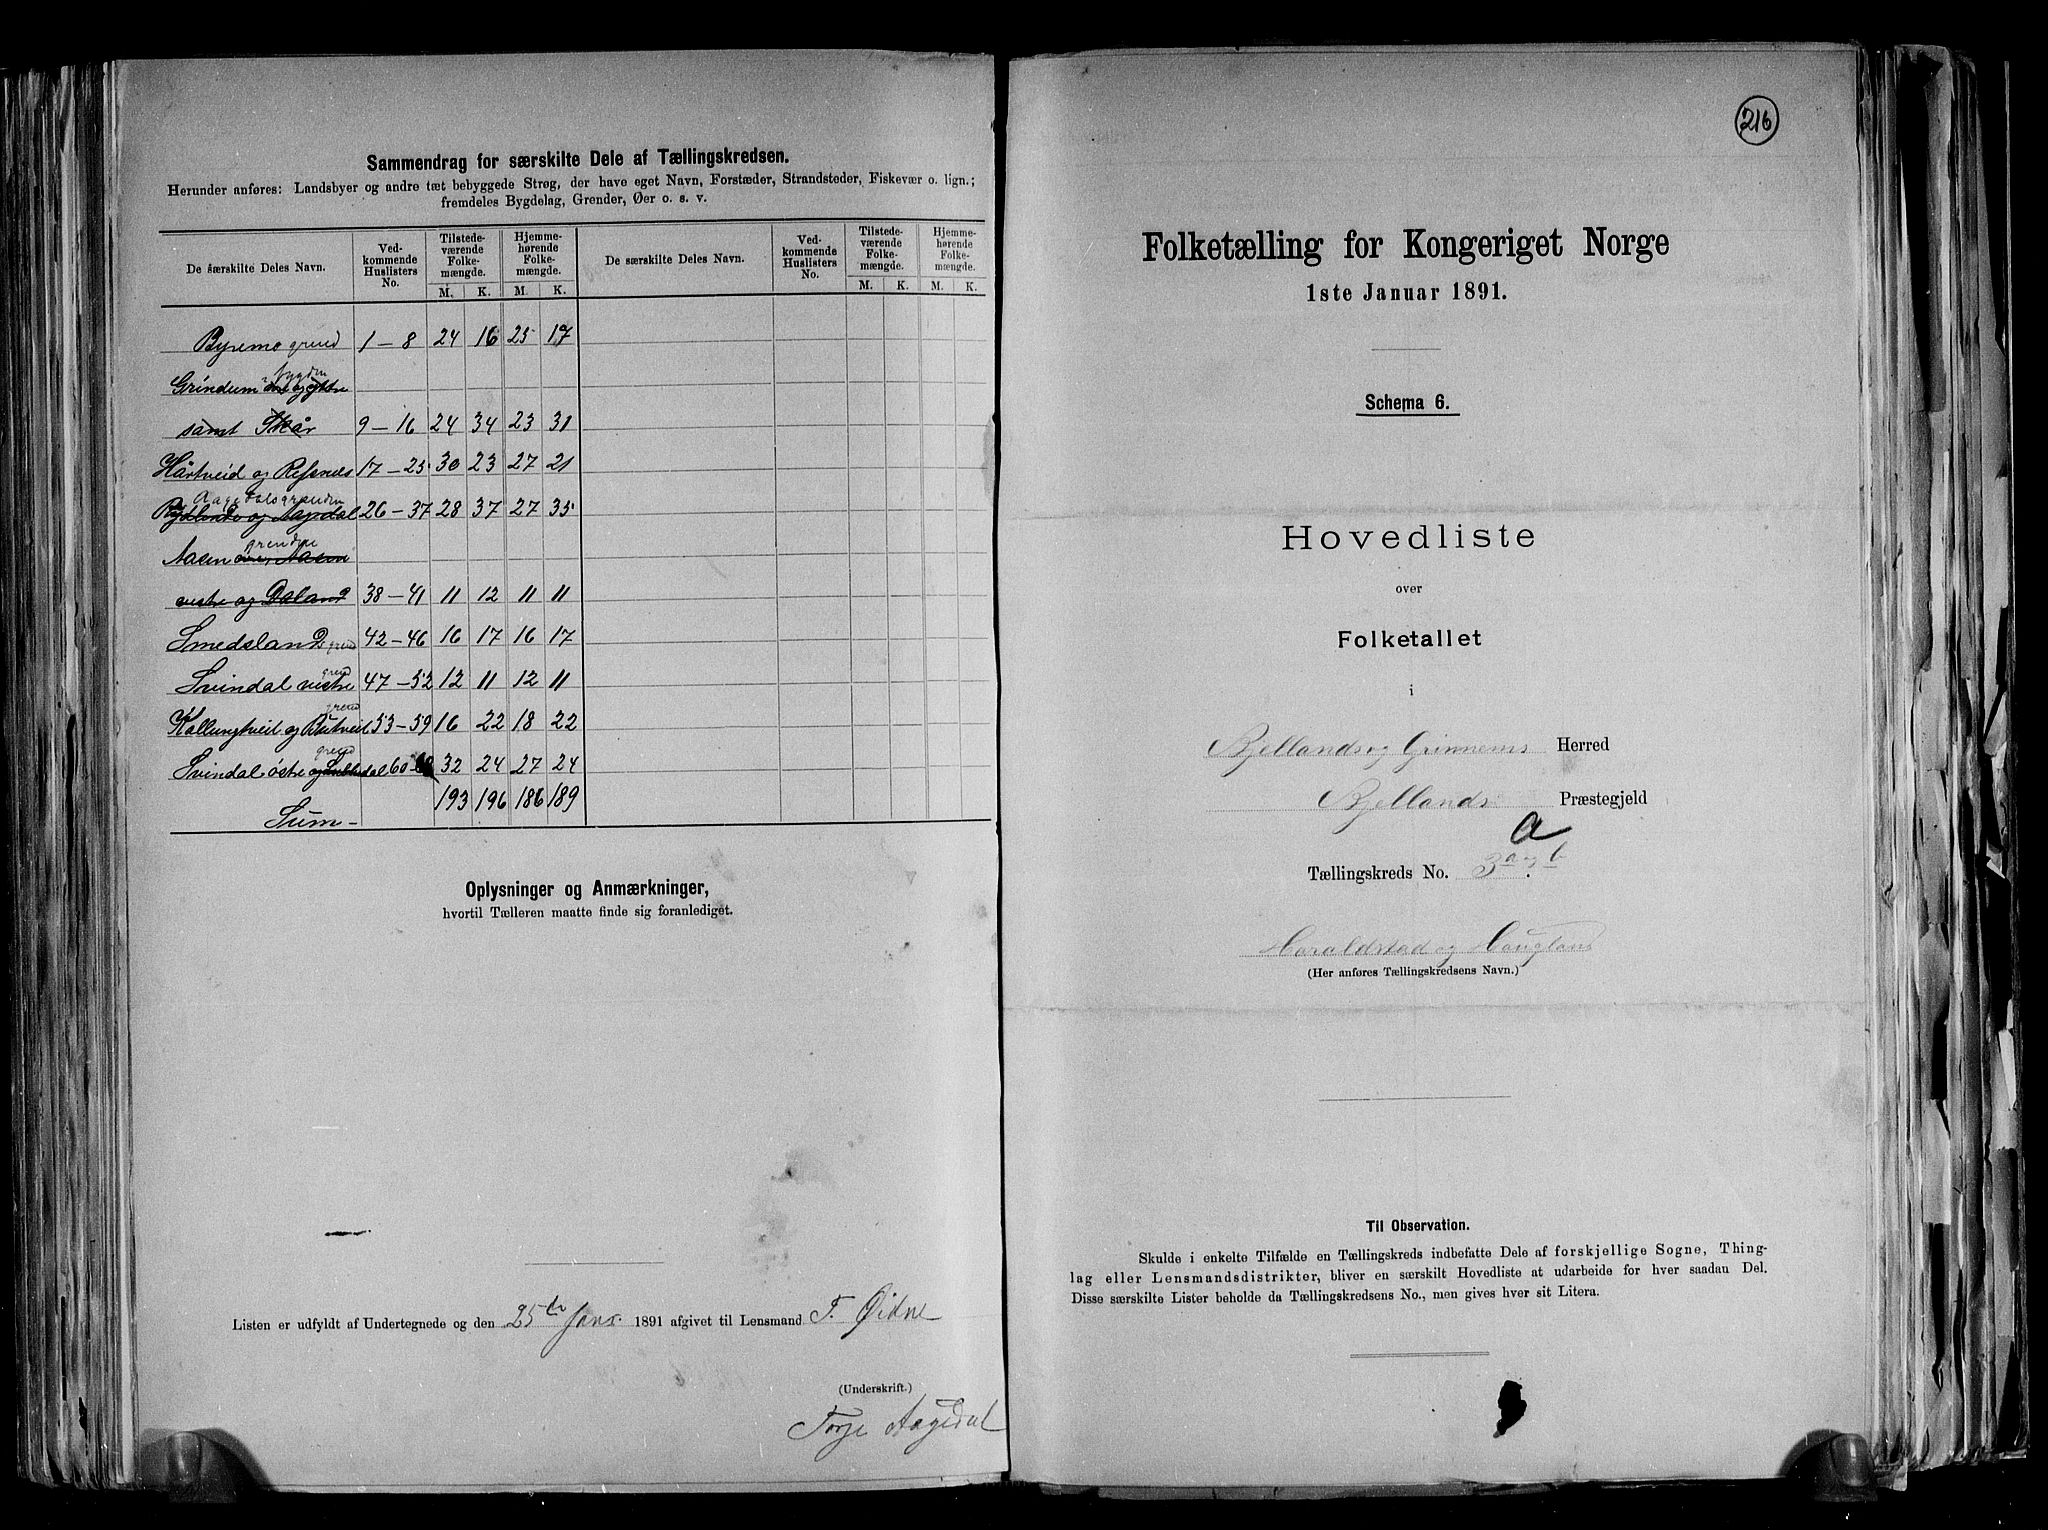 Sammendrag for særskilte Dele af Tællingskredsen.
Herunder anføres: Landsbyer og andre tæt bebyggede Strøg, der have eget Navn, Forstæder, Strandsteder, Fiskevær o. lign.;
fremdeles Bygdelag, Grender, Øer o. s. v.
De særskilte Deles Navn. Ved-kommende Huslisters No. Tilstede-værende Folke-mængde. Hjemme-hørende Folke-mængde. De særskilte Deles Navn. Ved-kommende Huslisters No. Tilstede-værende Folke-mængde. Hjemme-hørende Folke-mængde.
M. K. M. K. M. K. M. K.
Byremo grend 1 – 8 24 16 25 17
bygden
Grindum og ytre
samt Skår 9 – 16 24 34 23 31
Hårtveid og Refsnes 17 – 25 30 23 27 21
Aagedalsgrenden
og Aagedal 26 – 37 28 37 27 35
grendene
Aasen øvre, Aasen
vestre og Daland 38 – 41 11 12 11 11
Smedsland grend 42 – 46 16 17 16 17
grend
Svindal vestre 47 – 52 12 11 12 11
grend
Kallungtveid og Butveid 53 – 59 16 22 18 22
grend
Svindal östre og 60 32 24 27 24
193 196 186 189
Sum –
Oplysninger og Anmærkninger,
hvortil Tælleren maatte finde sig foranlediget.
Listen er udfyldt af Undertegnede og den 25de Janr. 1891 afgivet til Lensmand F. Øidne
(Underskrift.)
Torje Aagedal
216
Folketælling for Kongeriget Norge
1ste Januar 1891.
Schema 6.
Hovedliste
over
Folketallet
i
Bjellands og Grinnems Herred
Bjellands Præstegjeld
a
Tællingskreds No. 3 a og b
Haraldstad og Haugland
(Her anføres Tællingskredsens Navn.)
Til Observation.
Skulde i enkelte Tilfælde en Tællingskreds indbefatte Dele af forskjellige Sogne, Thing-
lag eller Lensmandsdistrikter, bliver en særskilt Hovedliste at udarbeide for hver saadan Del.
Disse særskilte Lister beholde da Tællingskredsens No., men gives hver sit Litera.